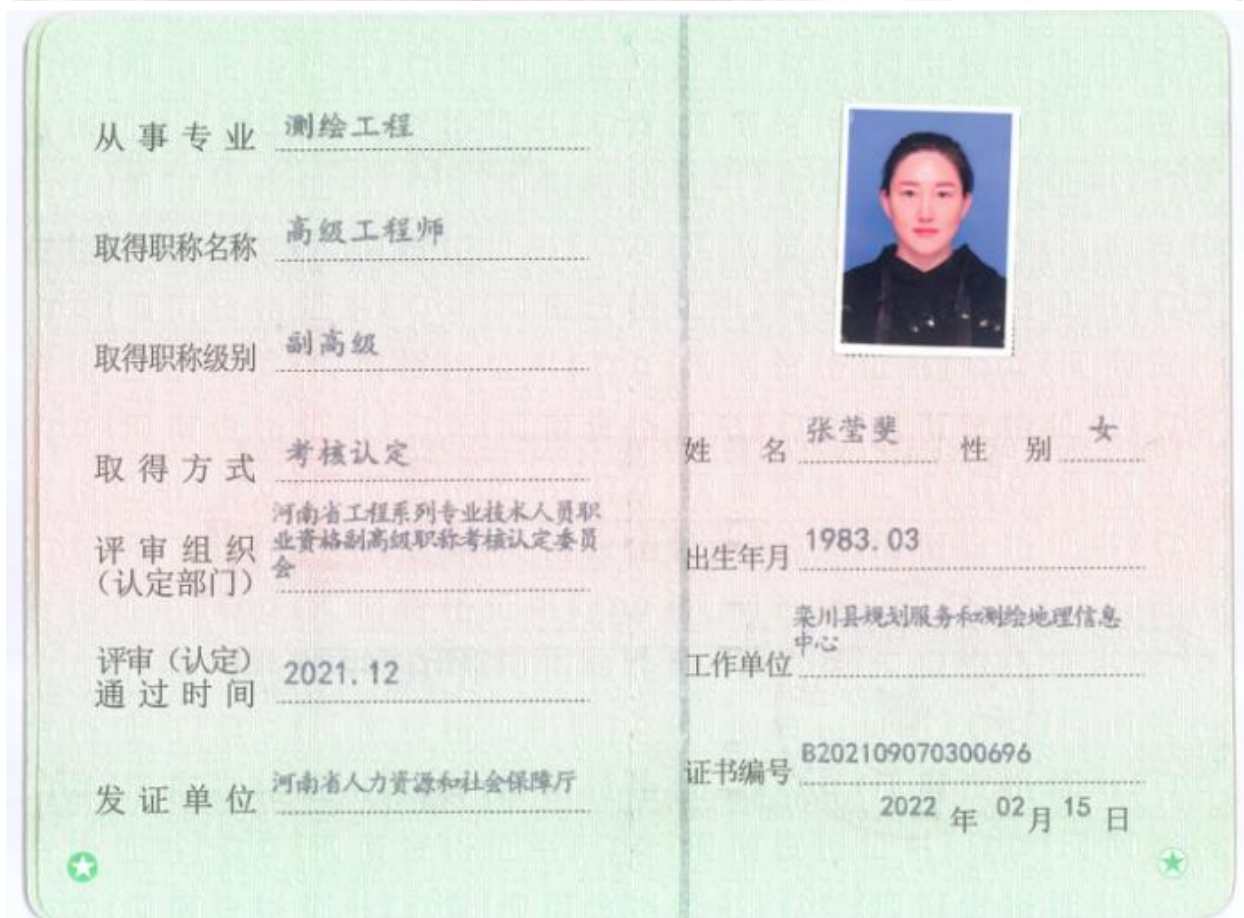 从事专业 测绘工程
取得职称名称 高级工程师
取得职称级别 副高级
取得方式 考核认定
评审组织
(认定部门)
河南省工程系列专业技术人员职
业资格副高级职称考核认定委员
会
评审(认定)
通过时间 2021.12
发证单位 河南省人力资源和社会保障厅
姓名 张莹斐 性别 女
出生年月 1983.03
工作单位 栾川县规划服务和测绘地理信息
中心
证书编号 B202109070300696
2022 年 02 月 15 日